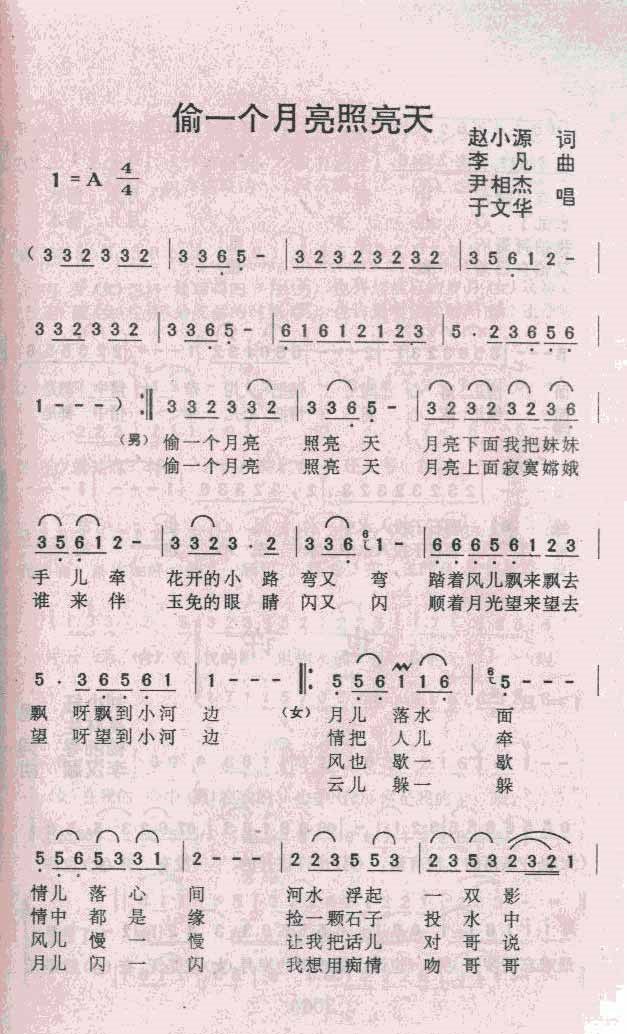 偷一个月亮照亮天
赵小源 词
李凡 曲
尹相杰
于文华 唱
1=A 4/4
(3 3 2 3 3 2 | 3 3 6 5 - | 3 2 3 2 3 2 3 2 | 3 5 6 1 2 - |
3 3 2 3 3 2 | 3 3 6 5 - | 6 1 6 1 2 1 2 3 | 5 · 2 3 6 5 6 |
1 - - - ) :‖ 3 3 2 3 3 2 | 3 3 6 5 - | 3 2 3 2 3 2 3 6 |
(男) 偷一个月亮 照亮 天 月亮下面我把妹妹
偷一个月亮 照亮 天 月亮上面寂寞嫦娥
3 5 6 1 2 - | 3 3 2 3 · 2 | 3 3 6 6 1 - | 6 6 6 6 6 1 2 3 |
手 儿 牵 花开的小 路 弯又 弯 踏着风儿飘来飘去
谁 来 伴 玉免的眼 睛 闪又 闪 顺着月光望来望去
5 · 3 6 5 6 1 | 1 - - - ‖: 5 5 6 1 1 6 | 6 5 - - |
飘 呀飘到小河 边 (女) 月儿 落水 面
望 呀望到小河 边 情把 人儿 牵
风也 歇一 歇
云儿 躲一 躲
5 5 6 5 3 3 1 | 2 - - - | 2 2 3 5 5 3 | 2 3 5 3 2 3 2 1 |
情儿 落 心 间 河水 浮起 一 双 影
情中 都 是 缘 捡一颗石子 投 水 中
风儿 慢 一 慢 让我把话儿 对 哥 说
月儿 闪 一 闪 我想用痴情 吻 哥 哥